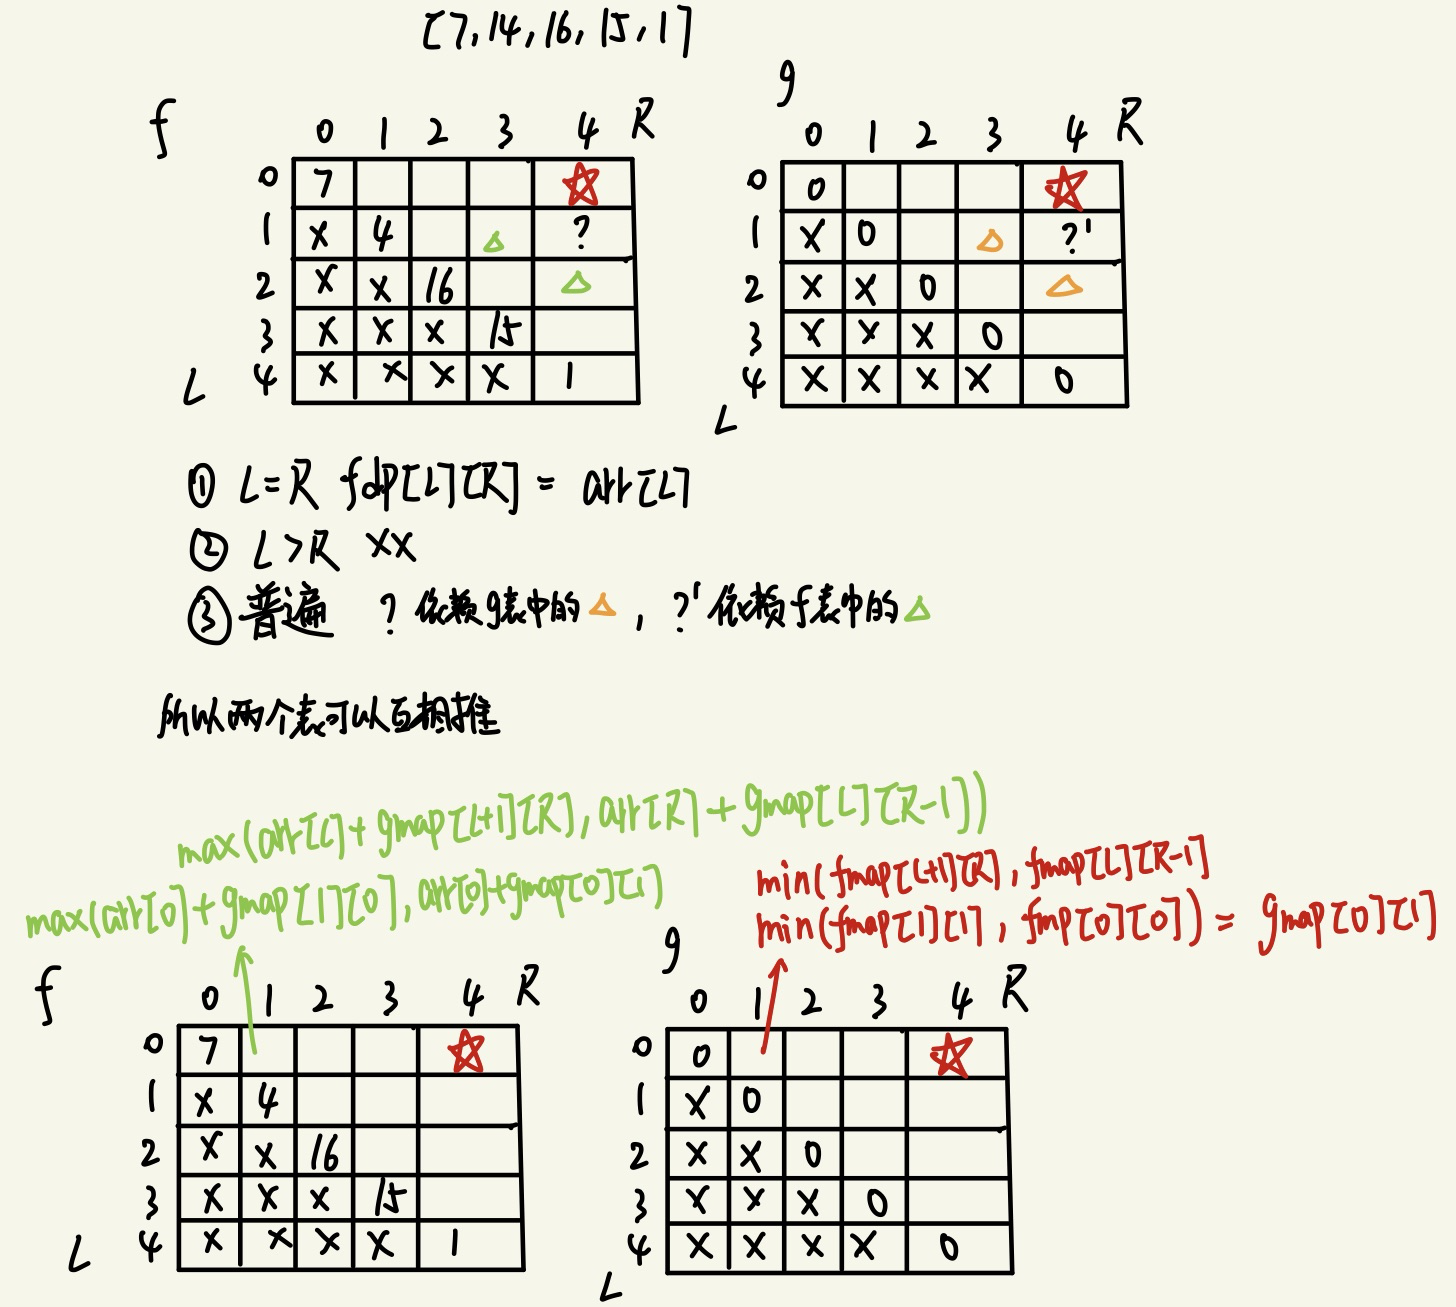 [7,14,16,15,1]
f
0 1 2 3 4 R
0 7 ☆
1 x 4 △ ?
2 x x 16 △
3 x x x 15
4 x x x x 1
L
g
0 1 2 3 4 R
0 0 ☆
1 x 0 △ ?'
2 x x 0 △
3 x x x 0
4 x x x x 0
L
① L=R fdp[L][R] = arr[L]
② L>R xx
③ 普遍 ? 依赖g表中的△, ?'依赖f表中的△
所以两个表可以互相推
max(arr[L]+gmap[L+1][R], arr[R]+gmap[L][R-1])
max(arr[0]+gmap[1][0], arr[0]+gmap[0][1]
min(fmap[L+1][R], fmap[L][R-1]
min(fmap[1][1], fmp[0][0]) = gmap[0][1]
f
0 1 2 3 4 R
0 7 ☆
1 x 4
2 x x 16
3 x x x 15
4 x x x x 1
L
g
0 1 2 3 4 R
0 0 ☆
1 x 0
2 x x 0
3 x x x 0
4 x x x x 0
L